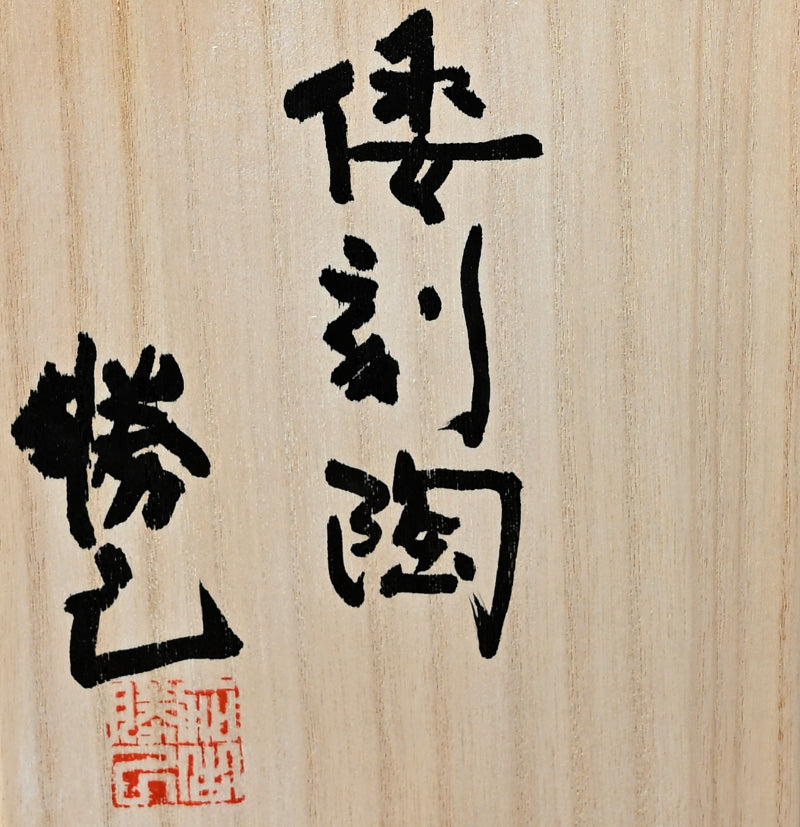 倭刻陶
勝己